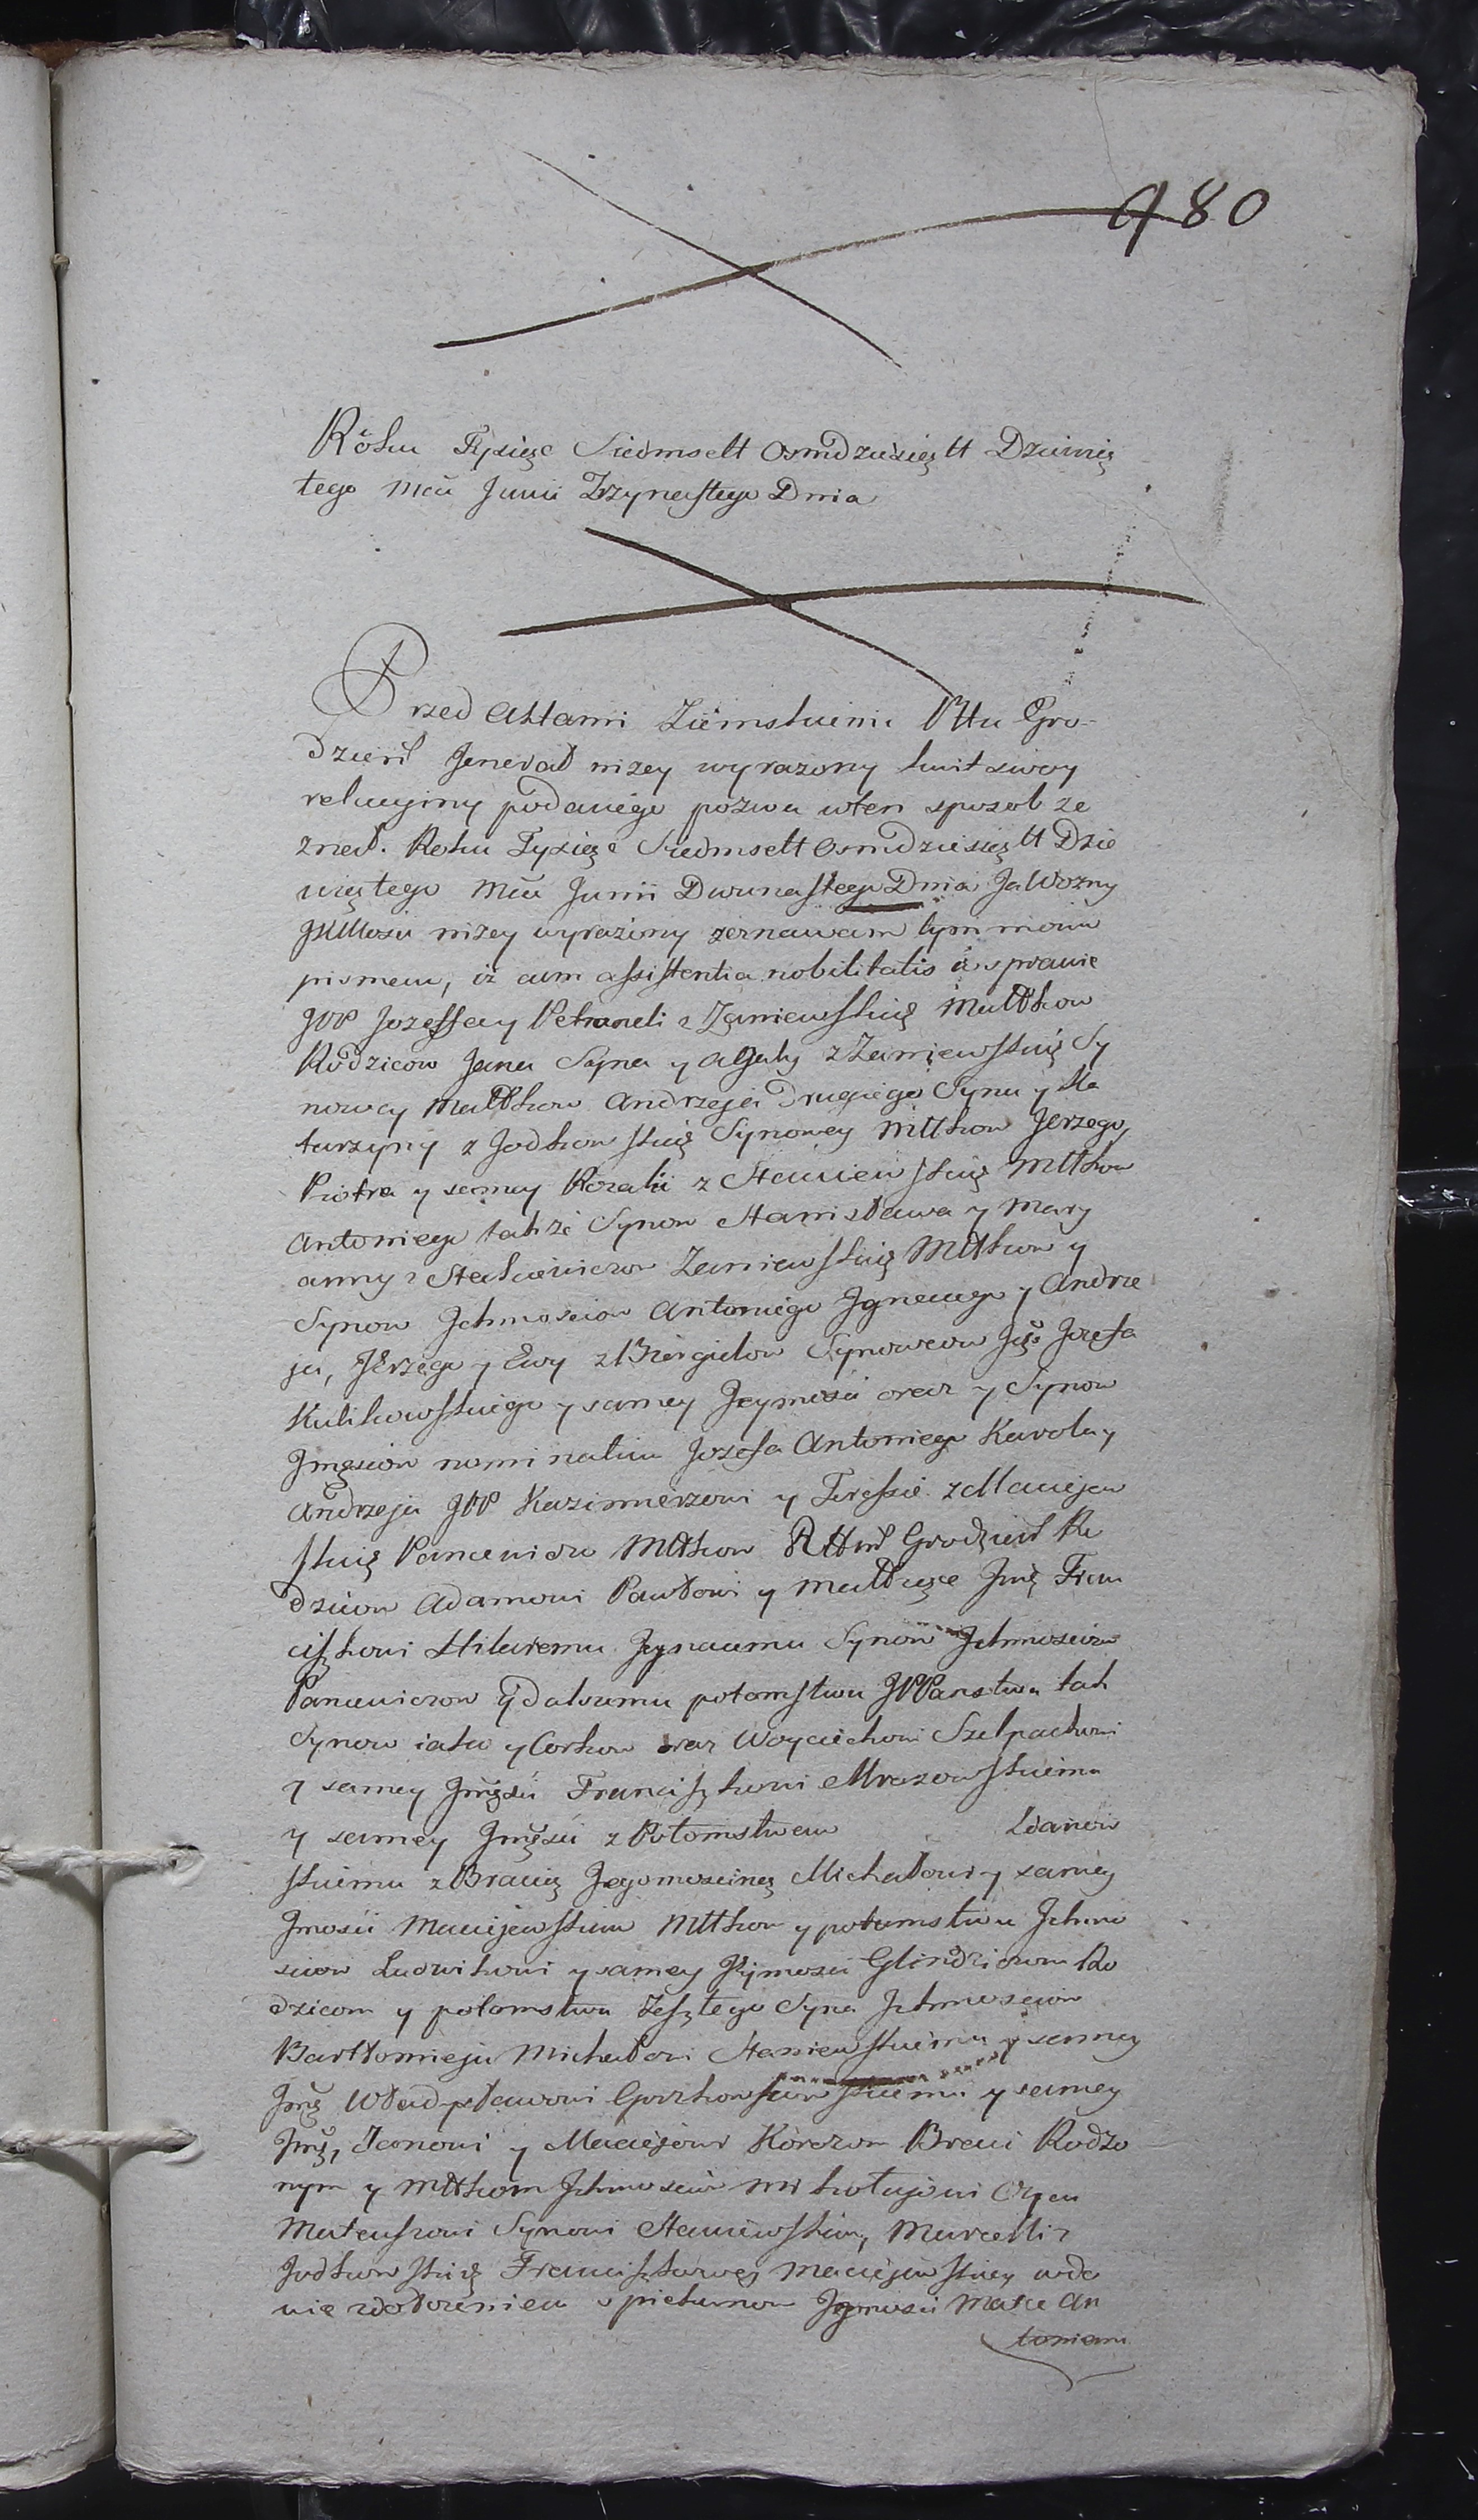 480
Roku Tysiąc Siedmsett Osmdziesiątt Dziewię
tego Mca Junii Trzynastego Dnia
Przed Aktami Ziemskiemi Pttu Gro-
dzień Jenerał niżey wyrażony kwit swoy
relacyiny podanego pozwu w ten sposob ze
znał. Roku Tysiąc Siedmsett Osmdziesiątt Dzie
wiątego Mca Junii Dwunastego Dnia Ja Wozny
JKMosci niżey wyrażony zeznawam tym moim
pismem, iż cum assistentia nobilitatis w sprawie
JPP Jozeffa y Petroneli z Zaniewskich Małżkow
Rodzicow Jana Syna y Agaty z Zaniewskich Sy
nowey Małżkow Andrzeja Drugiego Syna y Ka
tarzyny z Jodkowskich Synowey Mttkow Jerzego,
Piotra y samey Rozalii z Staniewskich Mttkow
Antoniego także Synow Stanisława y Mary
anny z Zaniewskich Mttkow y
Synow Ichmosciow Antoniego Jgnacego y Andrze
ja, Jerzego y Ewy z Synowcow Jozefa
Kulikowskiego y samey Jeymosci oraz y Synow
Jmsciow nominatim Jozefa Antoniego Karola y
Andrzeja JPP Kazimierzowi y Teressie z Maciejew
skich Pancewiczo Mttkow Grodzień Ro
dzicow Adamowi Pawłowi y Fran
ciszkowi Hilaremu Jgnacemu Synow Ichmosciow
Pancewiczow y dalszemu potomstwu JPPanstwa tak
Synow iako y Corkow oraz Woyciechowi Szelpachowi
y samey Jmsci Franciszkowi Mrozowskiemu
y samey Jmsci z Potomstwem Zdanow
skiemu z Bracią Jegomosciną Michałowi y samey
Jmosci Maciejewskim Mttkow y potomstwu Ichmo
sciow Ludwikowi y samey Jeymosci Glindziczom Ro
dzicom y potomstwu Zeszłego Syna Ichmosciow
Bartłomieja Michałowi Staniewskiemu y samey
Jmsc Władysławowi y samey
Jmsc, Janowi y Maciejowi Braci Rodzo
nym y Mttkom Ichmosciow Mikołajowi Oycu
Mateuszowi Synowi Staniewskim, Marcelli z
Jodkowskich Franciszkowey Maciejewskiey wdo
wie z dołozeniem opiekunow Jeymosci Matce An
toniemu